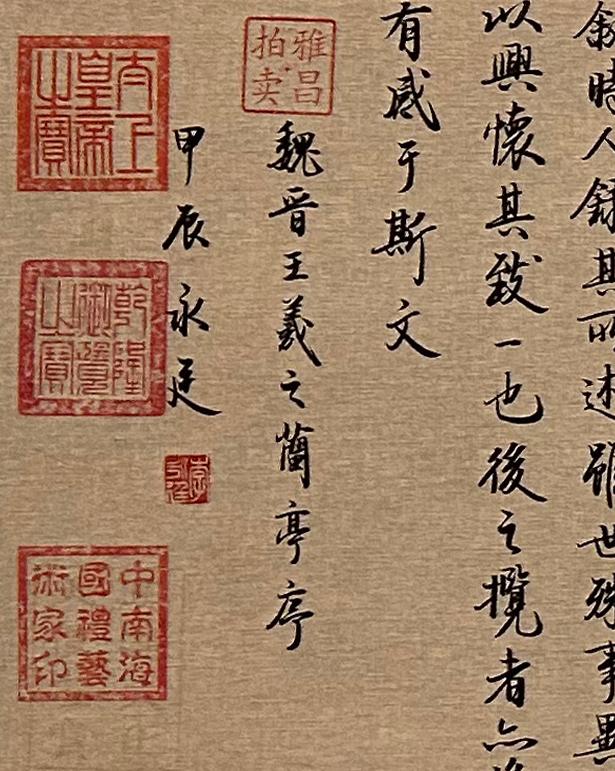 叙時人錄其所述雖世殊事異
以興懷其致一也後之攬者亦
有感于斯文
魏晉王羲之蘭亭序
甲辰永廷
雅昌
拍卖
太上
皇帝
之寶
乾隆
御覽
之寶
中南海
國禮藝
術家印